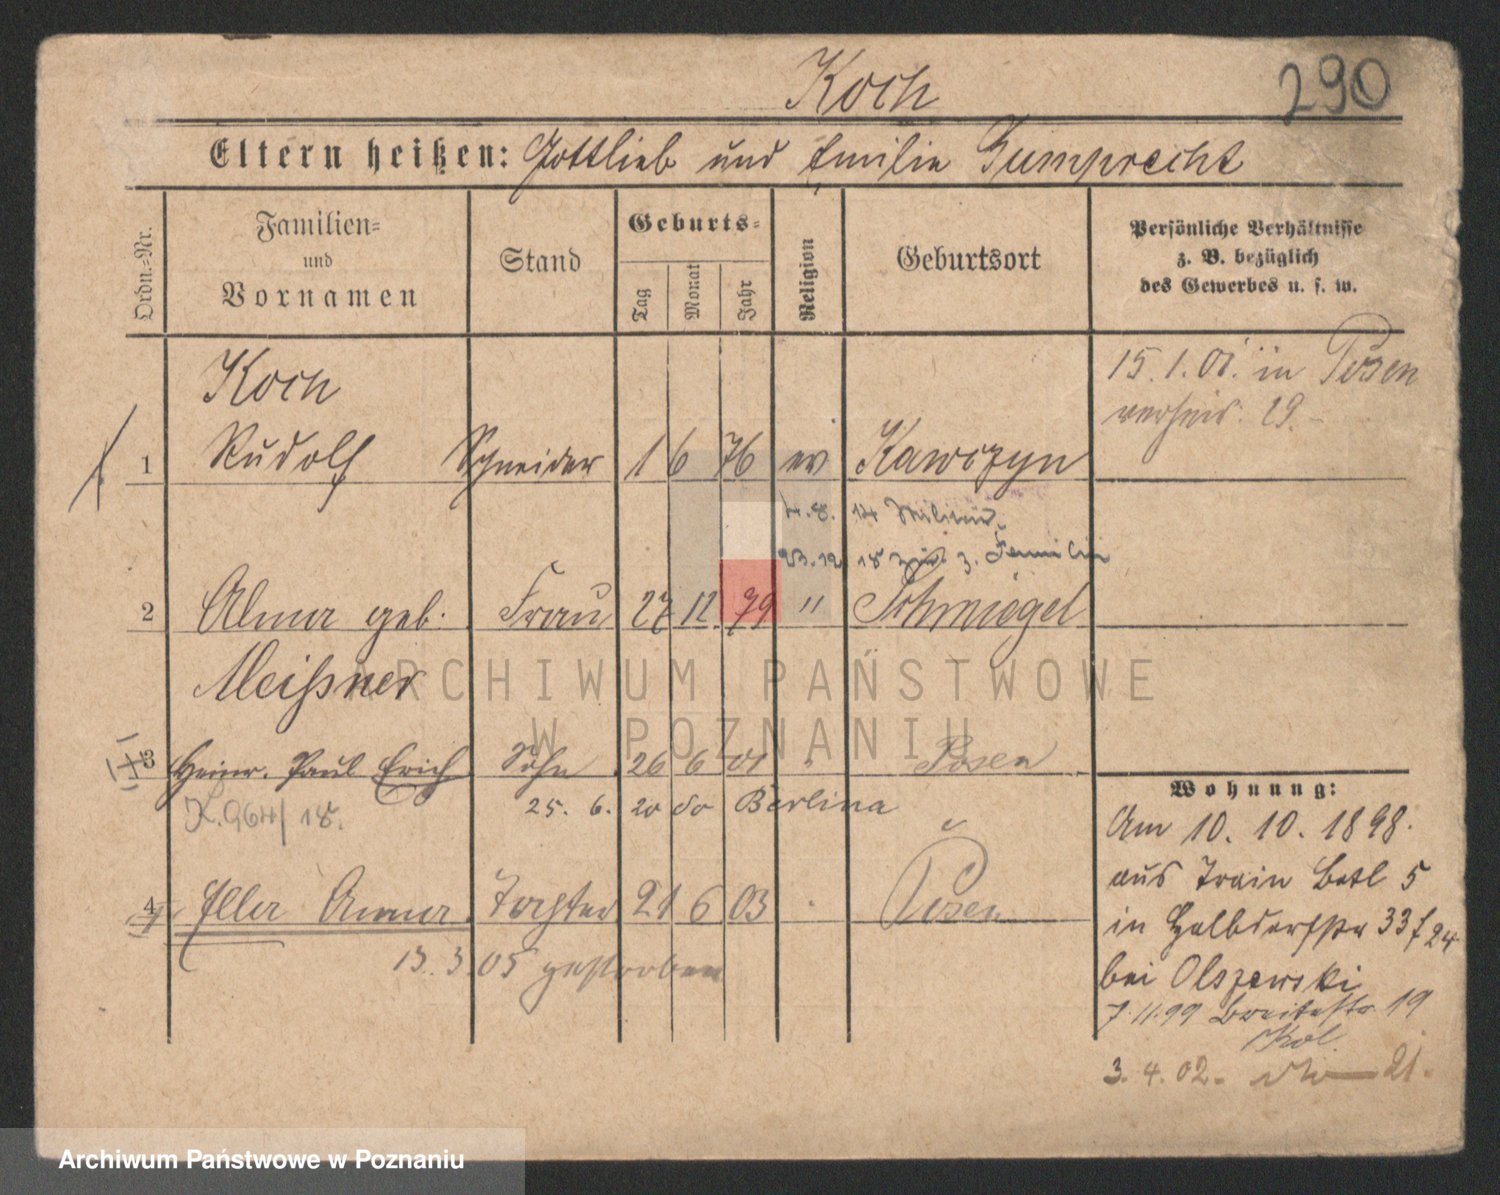 Koch
290
Eltern heißen: Gottlieb und Emilie Gumprecht
Ordn.=Nr.
Familien=
und
Vornamen
Stand
Geburts=
Tag
Monat
Jahr
Religion
Geburtsort
Persönliche Verhältnisse
z. B. bezüglich
des Gewerbes u. s. w.
Koch
1 Rudolf Schneider 1 6 76 ev Kawczyn
15.1.01. in Posen
verheir. 29.
4.8. 14 Militär
23.12 18 zur. z. Familie
2 Alma geb. Frau 27 12. 79 " Schmiegel
Meißner
3 Heinr. Paul Erich Sohn 26 6 01 Posen
K. 964/18.
25. 6. 20 do Berlin
4 Ella Anna Tochter 21 6 03 Posen
13.3.05 gestorben
Wohnung:
Am 10. 10. 1898.
aus Train Batl 5
in Halbdorfstr 33
bei Olszewski
7.11.99 Breitestr 19
3. 4. 02. 21.
ARCHIWUM PAŃSTWOWE
W POZNANIU
Archiwum Państwowe w Poznaniu